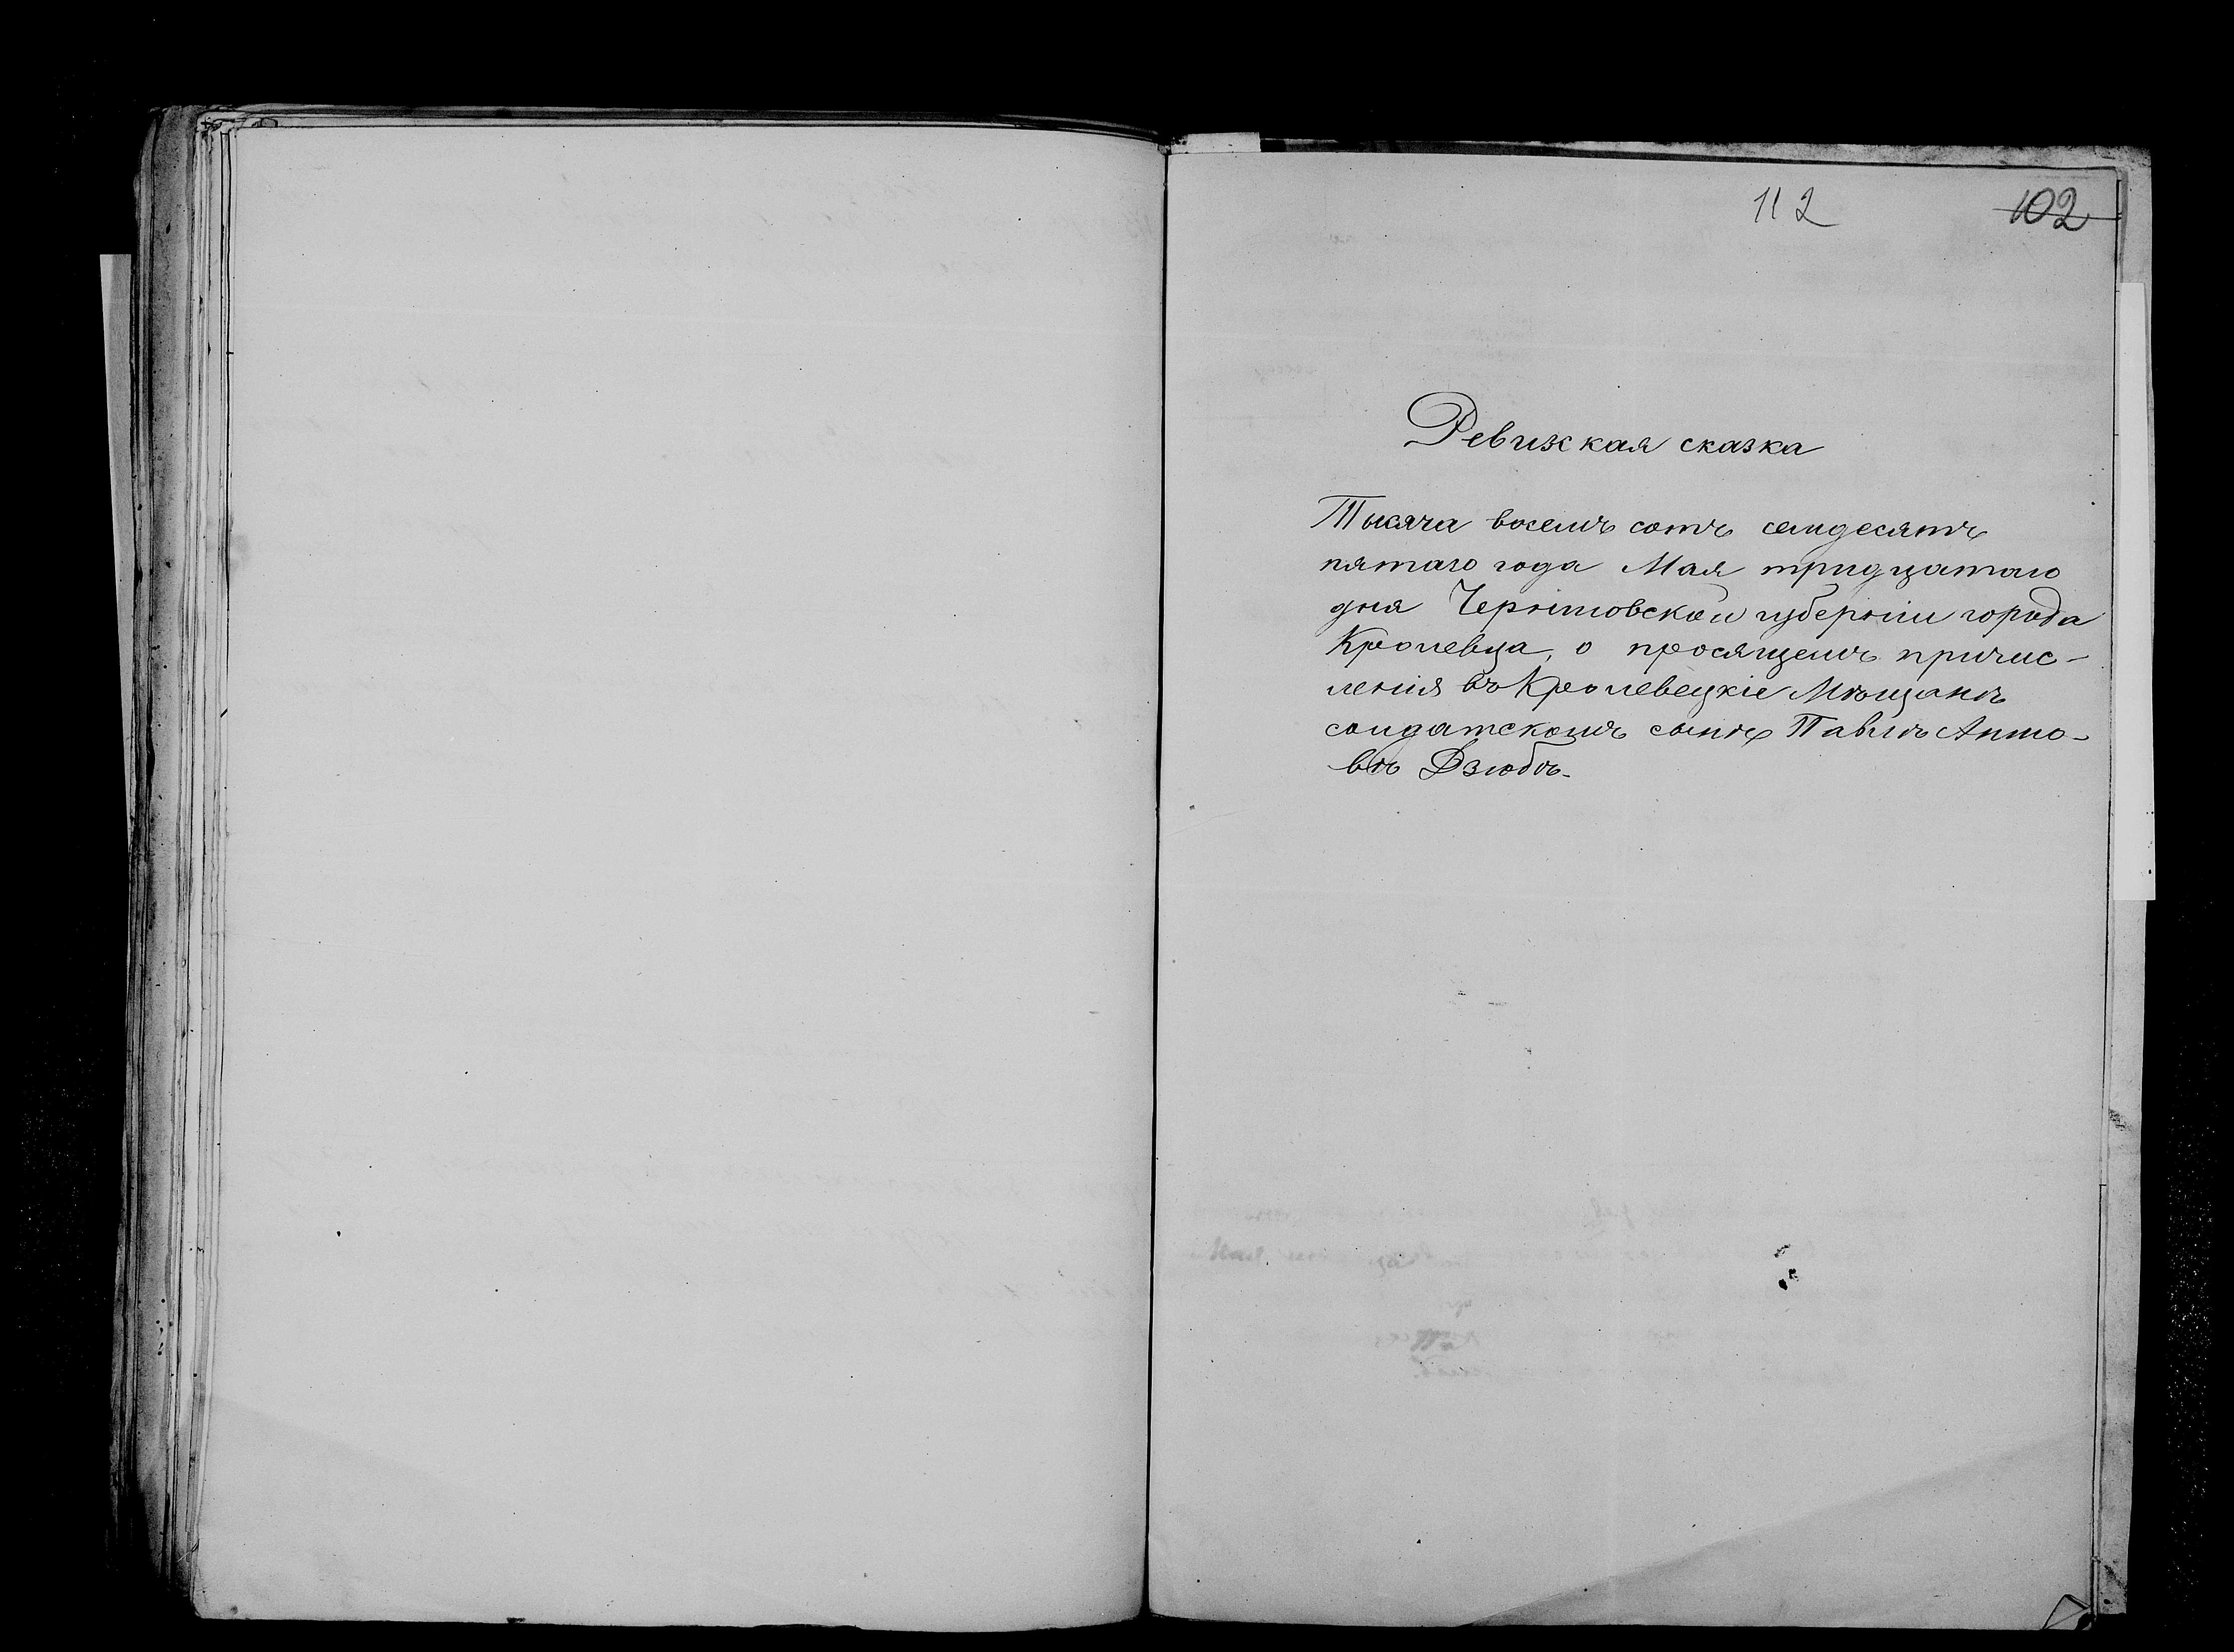 112 102
Ревижская сказка
Тысяча восемъ сотъ семдесятъ
пятаго года Мая тридцатаго
дня Черниговской губерніи города
Кролевца, о просящемъ причис-
ленія въ Кролевецкіе Мѣщанъ
солдатскомъ сынѣ Павлѣ Анто-
вѣ Дзюбѣ.